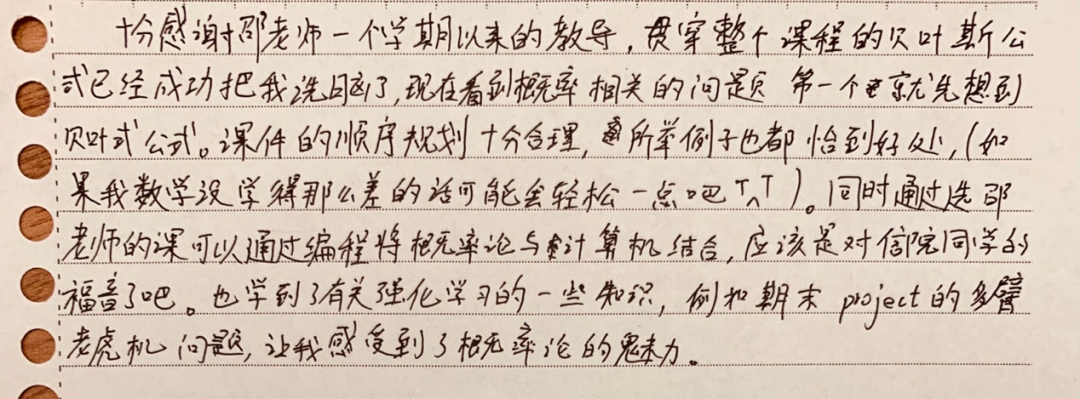 十分感谢邵老师一个学期以来的教导，贯穿整个课程的贝叶斯公
式已经成功把我洗脑了，现在看到概率相关的问题 第一个就先想到
贝叶式公式。课件的顺序规划十分合理，所举例子也都恰到好处，（如
果我数学没学得那么差的话可能会轻松一点吧T^T）。同时通过选邵
老师的课可以通过编程将概率论与计算机结合，应该是对信院同学的
福音了吧。也学到了有关强化学习的一些知识，例如期末 project 的多臂
老虎机问题，让我感受到了概率论的魅力。